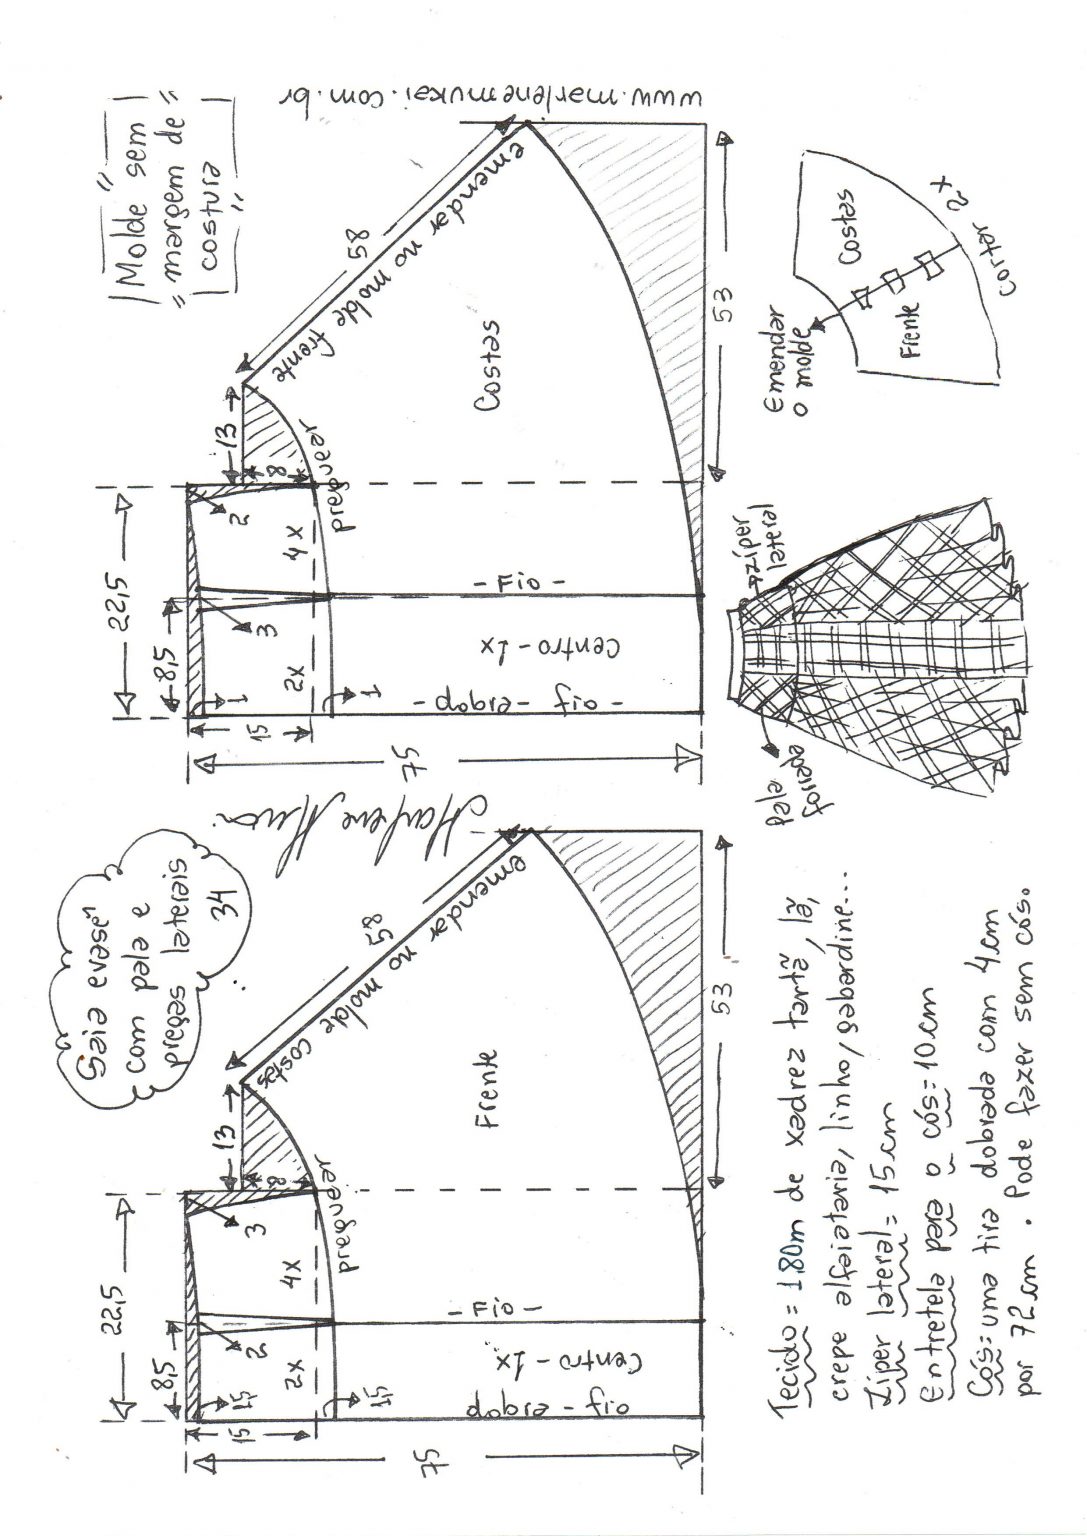 Saia evasê
com pala e
pregas laterais
34
|Molde sem|
"margem de"
|costura|
22,5
8,5
15
1,5
2
3
2x
4x
1,5
13
8
preguear
58
emendar no molde costas
Frente
- Fio -
Centro - 1x
fio - dobra
75
53
22,5
8,5
15
1
3
2
2x
4x
1
13
8
preguear
58
emendar no molde frente
Costas
- Fio -
Centro - 1x
- fio - dobra -
75
53
www.marlenemukai.com.br
Tecido = 1,80m de xadrez tartã, lã,
crepe alfaiataria, linho, gabardine...
Zíper lateral = 15cm
Entretela para o cós = 10cm
Cós = uma tira dobrada com 4cm
por 72cm. Pode fazer sem cós.
pala
forrada
zíper
lateral
Emendar
o molde
Frente
Costas
Cortar 2x